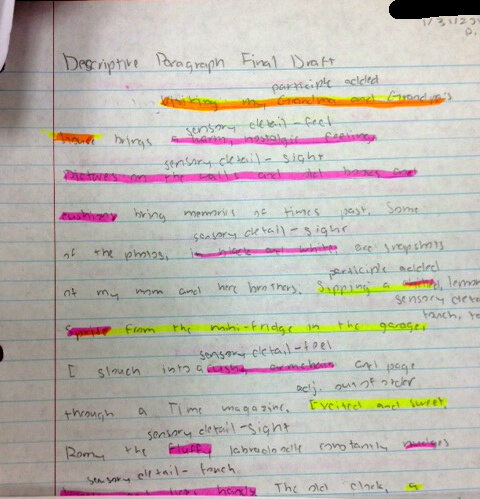 1/31/20
Descriptive Paragraph Final Draft
participle added
Visiting my Grandma and Grandma's
sensory detail - feel
house brings a warm, nostalgic feeling.
sensory detail - sight
Pictures on the walls and old books and
cushions bring memories of times past. Some
sensory detail - sight
of the photos, in black and white are snapshots
participle added
of my mom and here brothers. Sipping a chilled, lemon
sensory deta
touch, ta
Sprite from the mini-fridge in the garage,
sensory detail - feel
I slouch into a armchair and page
adj. out of order
through a Time magazine. Excited and sweet,
sensory detail - sight
Romy the fluffy labradoodle constantly nudges
sensory detail - touch
hands. The old clock, a